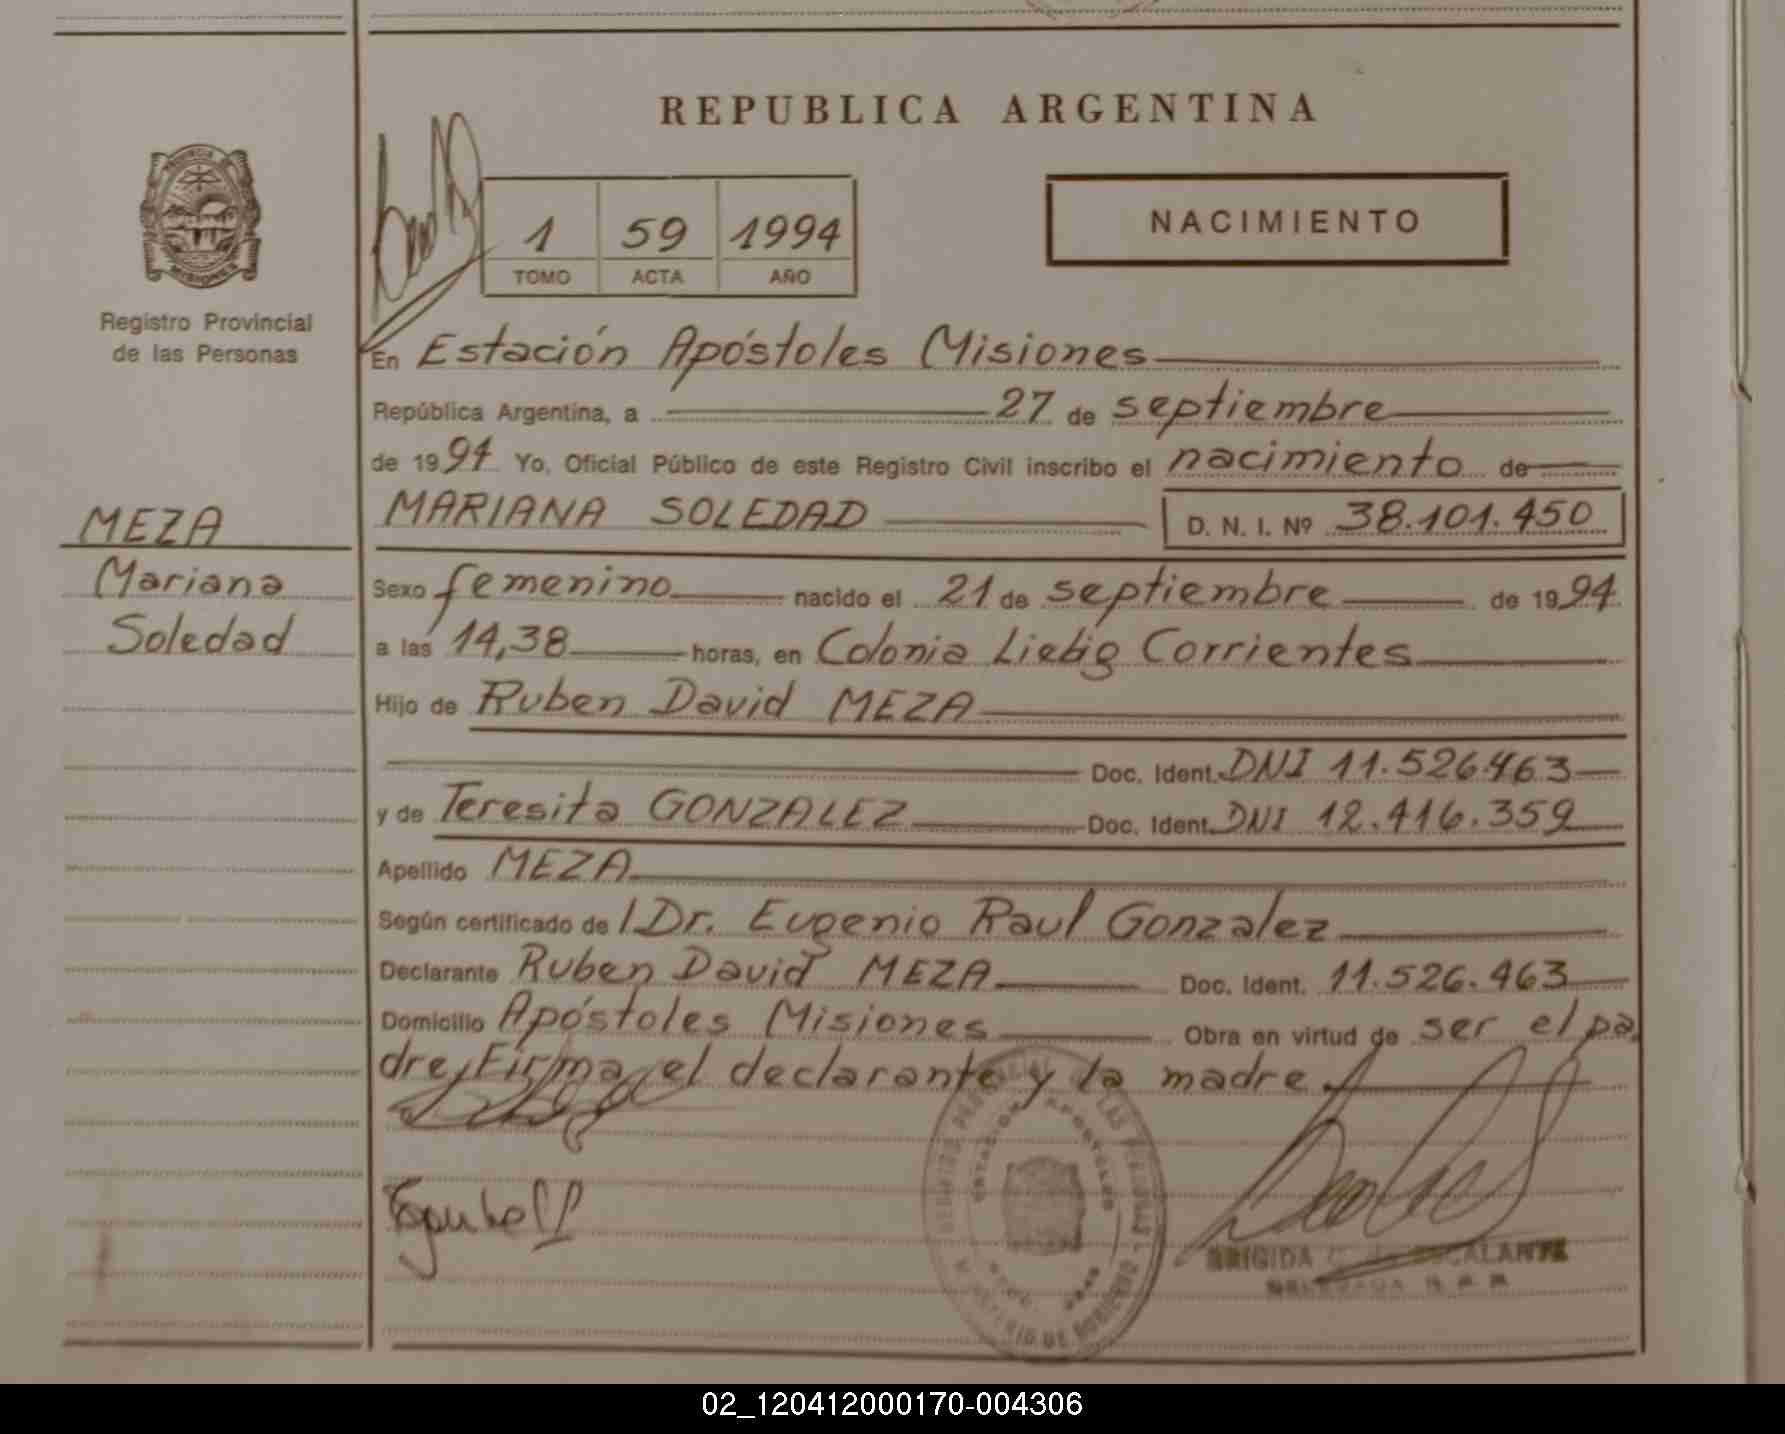 REPUBLICA ARGENTINA
PROVINCIA DE
MISIONES
Registro Provincial
de las Personas
1 59 1994
TOMO ACTA AÑO
NACIMIENTO
En Estación Apóstoles Misiones
República Argentina, a 27 de septiembre
de 1994 Yo, Oficial Público de este Registro Civil inscribo el nacimiento de
MARIANA SOLEDAD D. N. I. Nº 38.101.450
MEZA
Mariana
Soledad
Sexo femenino nacido el 21 de septiembre de 1994
a las 14,38 horas, en Colonia Liebig Corrientes
Hijo de Ruben David MEZA
Doc. Ident. DNI 11.526.463
y de Teresita GONZALEZ Doc. Ident. DNI 12.416.359
Apellido MEZA
Según certificado de l Dr. Eugenio Raul Gonzalez
Declarante Ruben David MEZA Doc. Ident. 11.526.463
Domicilio Apóstoles Misiones Obra en virtud de ser el pa
dre, Firma el declarante y la madre
ESTACION APOSTOLES
MINISTERIO DE GOBIERNO
BRIGIDA ESCALANTE
02_120412000170-004306